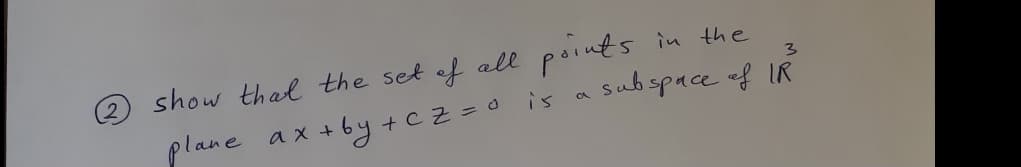 ② show that the set of all points in the
plane ax + by + cz = 0 is a subspace of ℝ³